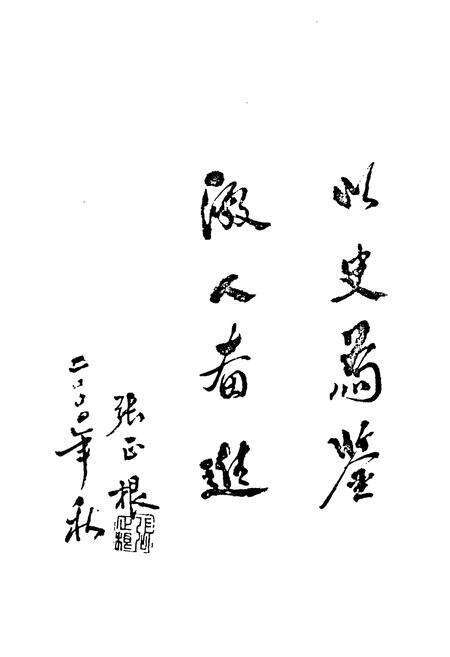 以史為鉴
激人奋進
張正根
二〇〇〇年秋